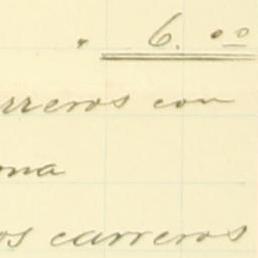 " 6.00
rreros con
na
os carreros